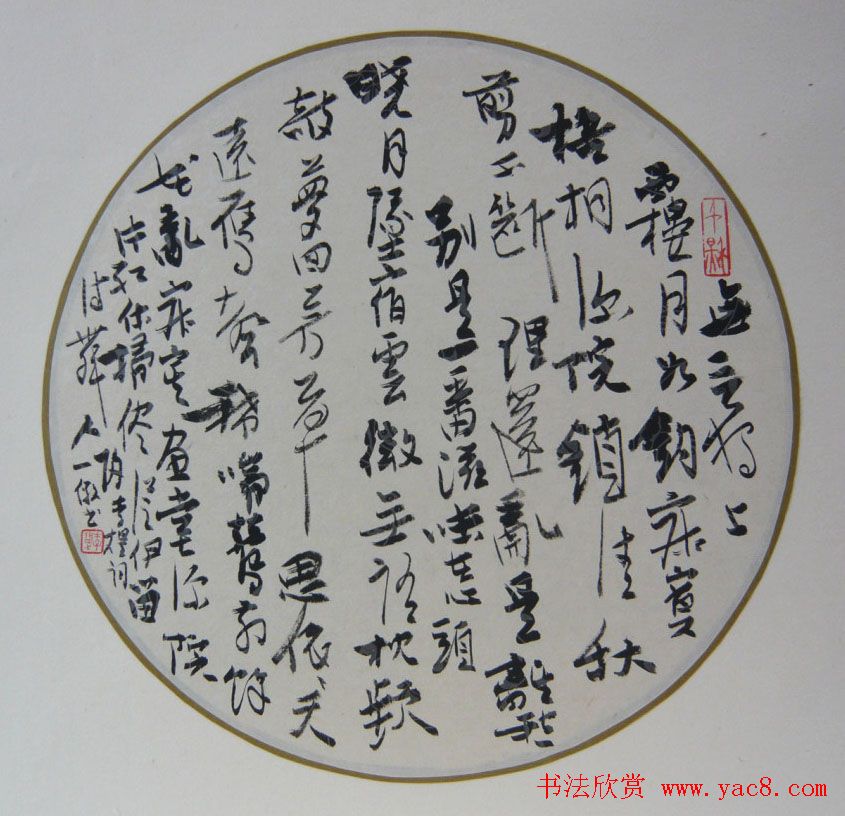 無言獨上
西樓月如鉤寂寞
梧桐深院鎖清秋
剪不斷理還亂是離愁
別是一番滋味在心頭
曉月墜宿雲微無語枕頻
敧夢回芳草思依依天
遠雁聲稀啼鶯散餘
花亂寂寞畫堂深院
片紅休掃儘從伊留
待舞人
李煜詞
一
书法欣赏 www.yac8.com